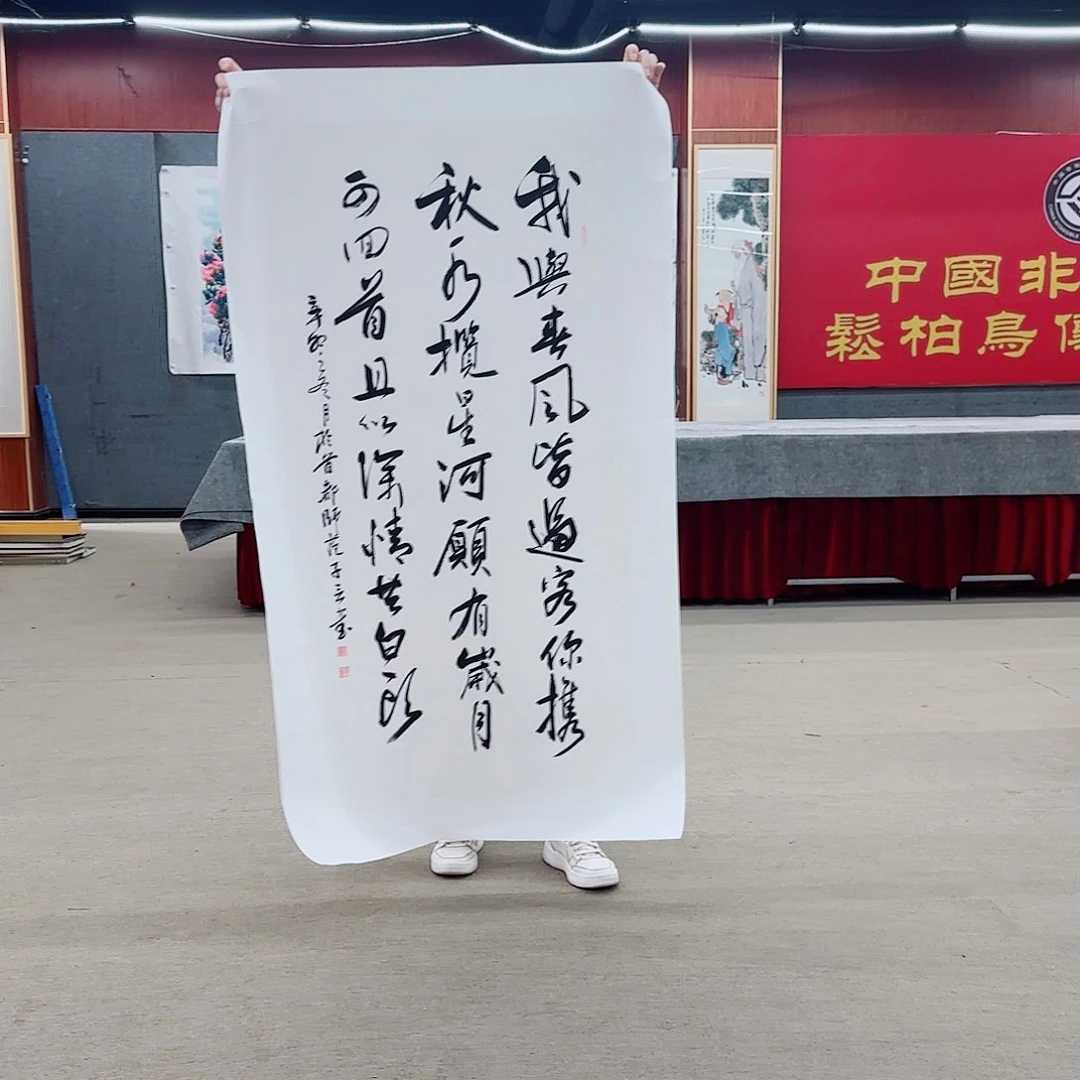 我與春風皆過客你攜
秋水攬星河願有歲月
可回首且以深情共白頭
辛卯之冬月於首都師范子立
中國非
鬆柏鳥傳